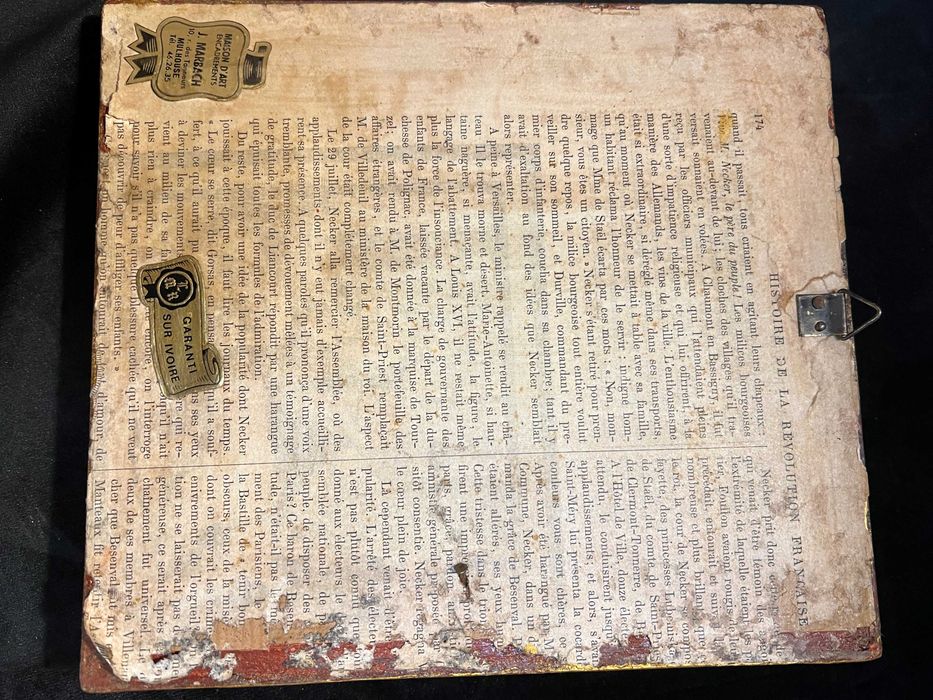 MAISON D'ART
ENCADREMENTS
J. MARBACH
10, r. des Tanneurs
MULHOUSE
Tél. 46-26-35
GARANTI
SUR IVOIRE
174
HISTOIRE DE LA RÉVOLUTION FRANÇAISE
quand il passait tous criaient en agitant leurs chapeaux :
Vive M. Necker, le père du peuple! Les milices bourgeoises
venaient au-devant de lui; les cloches des villages qu'il tra-
versait sonnaient en volées. A Chaumont en Bassigny, il fut
reçu par les officiers municipaux qui l'attendaient pleins
d'une sorte d'impatience religieuse et qui lui offrirent, à la
manière des Allemands, les vins de la ville. L'enthousiasme
était si extraordinaire, si déréglé même dans ses transports,
qu'au moment où Necker se mettait à table avec sa famille,
un habitant réclama l'honneur de le servir : indigné hom-
mage que Mme de Stael écarta par ces mots : « Non, mon-
sieur, vous êtes un citoyen. » Necker s'étant retiré pour pren-
dre quelque repos, la milice bourgeoise tout entière voulut
veiller sur son sommeil, et Durville, commandant du pre-
mier corps d'infanterie, coucha dans sa chambre; tant il y
avait d'exaltation au fond des idées que Necker semblait
alors représenter.
A peine à Versailles, le ministre rappelé se rendit au châ-
teau. Il le trouva morne et désert. Marie-Antoinette, si hau-
taine naguère, si menaçante, avait l'attitude, la figure, le
langage de l'abattement. A Louis XVI, il ne restait même
plus la force de l'insouciance. La charge de gouvernante des
enfants de France, laissée vacante par le départ de la du-
chesse de Polignac, avait été donnée à la marquise de Tour-
zel; on avait rendu à M. de Montmorin le portefeuille des
affaires étrangères, et le comte de Saint-Priest remplaçait
M. de Villedeuil au ministère de la maison du roi. L'aspect
de la cour était complètement changé.
Le 29 juillet, Necker alla remercier l'Assemblée, où des
applaudissements dont il n'y eut jamais d'exemple accueilli-
rent sa présence. A quelques paroles qu'il prononça d'une voix
tremblante, promesses de dévouement mêlées à un témoignage
de gratitude, le duc de Liancourt répondit par une harangue
qui épuisait toutes les formules de l'admiration.
Du reste, pour avoir une idée de la popularité dont Necker
jouissait à cette époque, il faut lire les journaux du temps.
« Le cœur se serre, dit Gorsas, en songeant à ce qu'il a souf-
fert, à ce qu'il aurait pu dans ses yeux
à deviner les mouvements qu'il n'ait
vient au milieu de sa re qui re-
plus rien à craindre, on encore, on l'interroge
pour savoir s'il n'a pas quelque blessure cachée qu'il ne veut
pas découvrir de peur d'affliger ses enfants. »
d'amour, de
Necker prit donc
qui venait d'être témoin des
l'extrémité de laquelle étaient les
tier, Foulon avaient rougis,
précédait, entourait et suivait
nombreuse et plus brillante que
Le roi, la cour de Necker se comp
fayette, des princesses Lubomirs
de Staël, du comte de Saint-Pri
de Clermont-Tonnerre, de B
A l'Hôtel de Ville, douze élec
attendu, le conduisirent jusqu
applaudissements; et alors, s'avan
Saint-Méry lui présenta la cocard
couleurs vous sont chères, ce
Après avoir été harangué par M
Commune, Necker, dans un d
manda la grâce de Besenval.
étaient allérés, ses yeux
Cette tristesse dans le triom
firent une impression profon
parts, grâce, pardon, am
amnistie générale proposée
sitôt consentie. Necker regagna
le cœur plein de joie.
Là cependant venait d'être
pularité. L'arrêté des électeur
n'est pas plutôt connu que
donné aux électeurs le
semblée nationale, de p
peuple, de disposer des
Paris? Ce baron de Besen
tude, n'était-il pas le mê
ment des Parisiens, le
la Bastille de « tenir bon
obscurs, ceux de la misè
dont on couvrait les crime
enivrements de l'orgueil
tion ne se laisserait pas d
généreuse, ce serait après
chaînement fut universel. L
doux de ses membres à Villen
cher que Besenval ait mis
Manteaux fit retentir